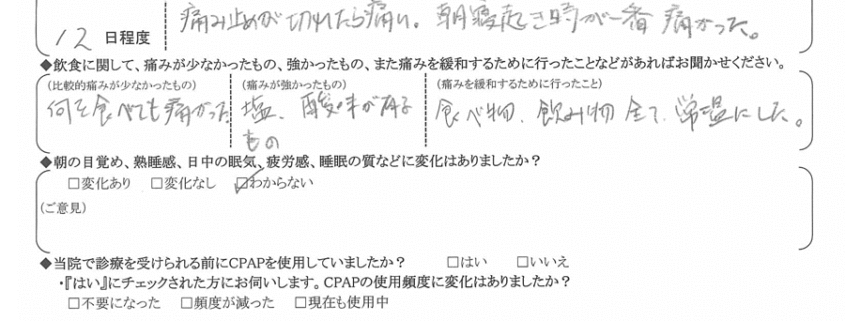 痛み止めが切れたら痛い。朝寝起き時が一番痛かった。
12 日程度
◆飲食に関して、痛みが少なかったもの、強かったもの、また痛みを緩和するために行ったことなどがあればお聞かせください。
(比較的痛みが少なかったもの) (痛みが強かったもの) (痛みを緩和するために行ったこと)
何を食べても痛かった 塩、酸味が有る 食べ物、飲み物 全て、常温にした。
もの
◆朝の目覚め、熟睡感、日中の眠気、疲労感、睡眠の質などに変化はありましたか？
□変化あり □変化なし ☑わからない
(ご意見)
◆当院で診療を受けられる前にCPAPを使用していましたか？ □はい □いいえ
・『はい』にチェックされた方にお伺いします。CPAPの使用頻度に変化はありましたか？
□不要になった □頻度が減った □現在も使用中